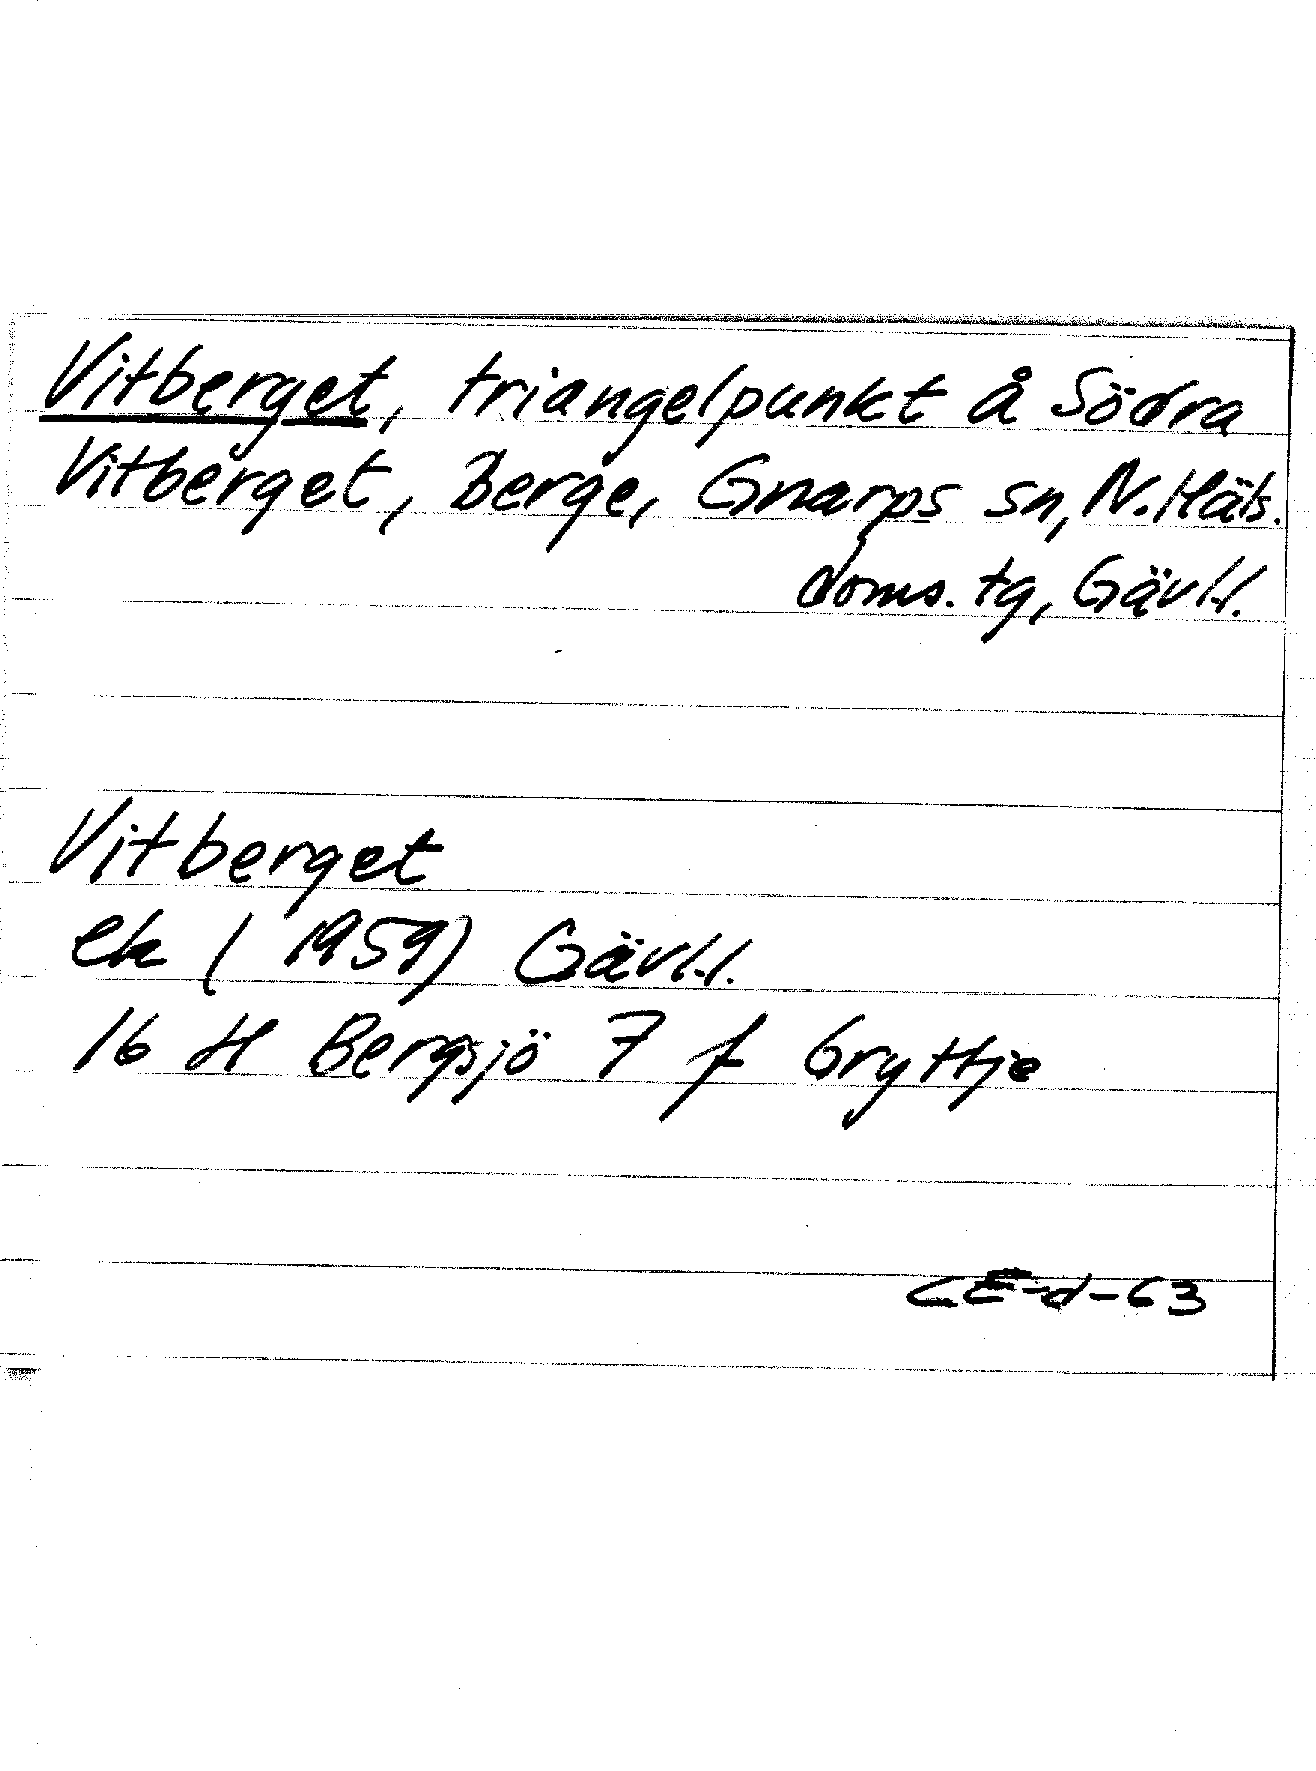 Vitberget, triangelpunkt å Södra
Vitberget, Berge, Gnarps sn, N. Häls.
doms. tg, Gävl.l.
Vitberget
ek (1959) Gävl.l.
16 H Bergsjö 7 f Gryttje
CE-d-63